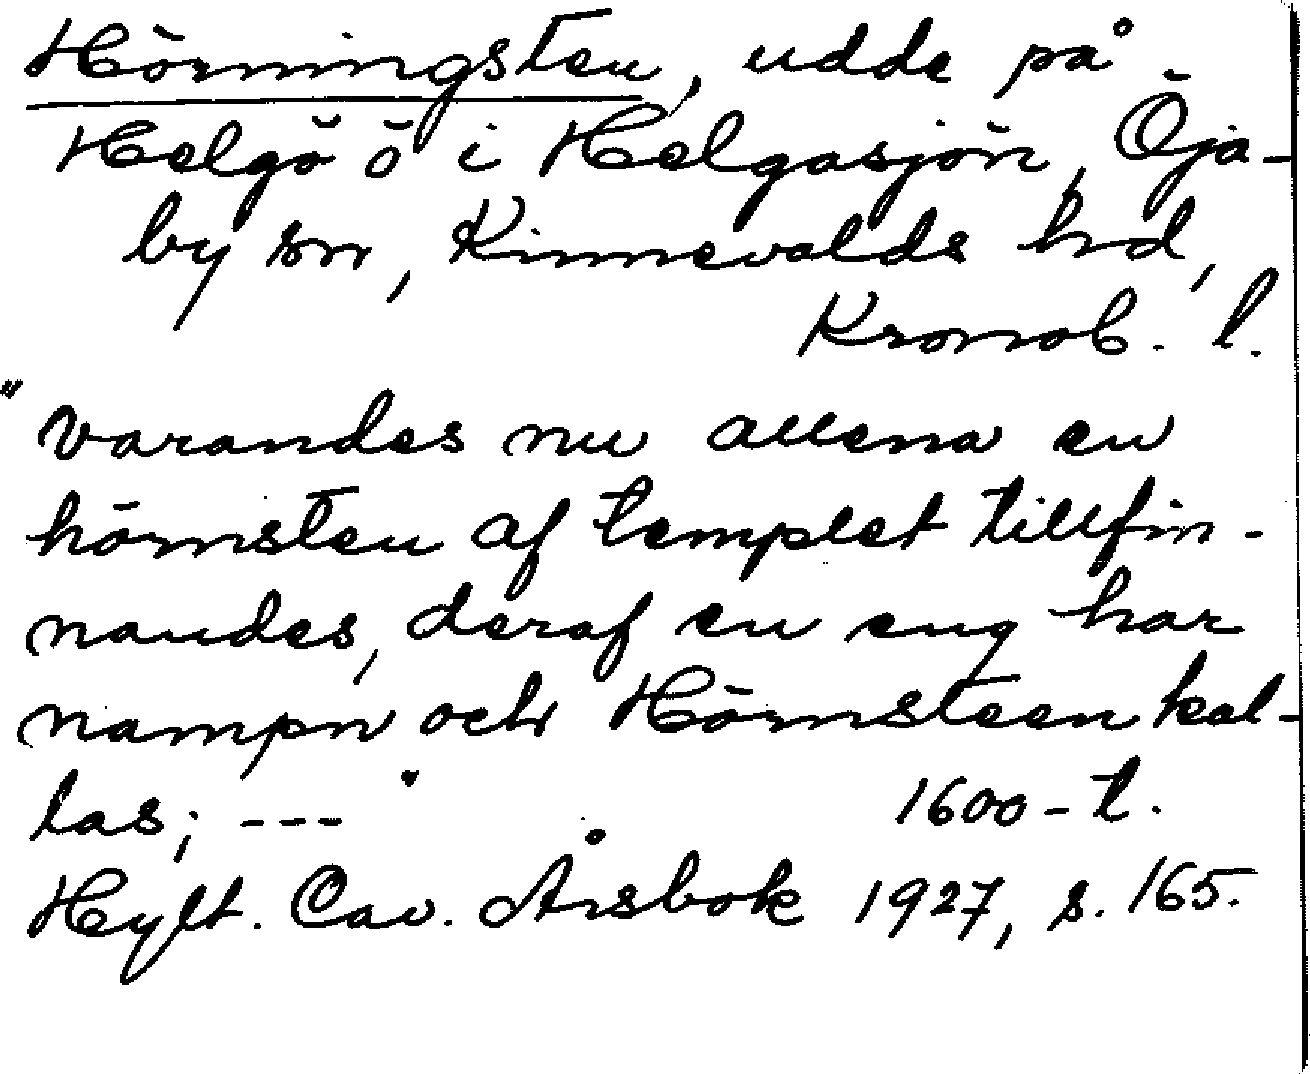 Hörningsten, udde på
Helgö ö i Helgasjön, Öja-
by sn, Kinnevalds hd,
Kronob. l.
"varandes nu allena en
hörnsten af templet tillfin-
nandes, deraf en eng har
nampn och Hörnsteen kal-
las; ---" 1600-t.
Hylt. Cav. Årsbok 1927, s. 165.